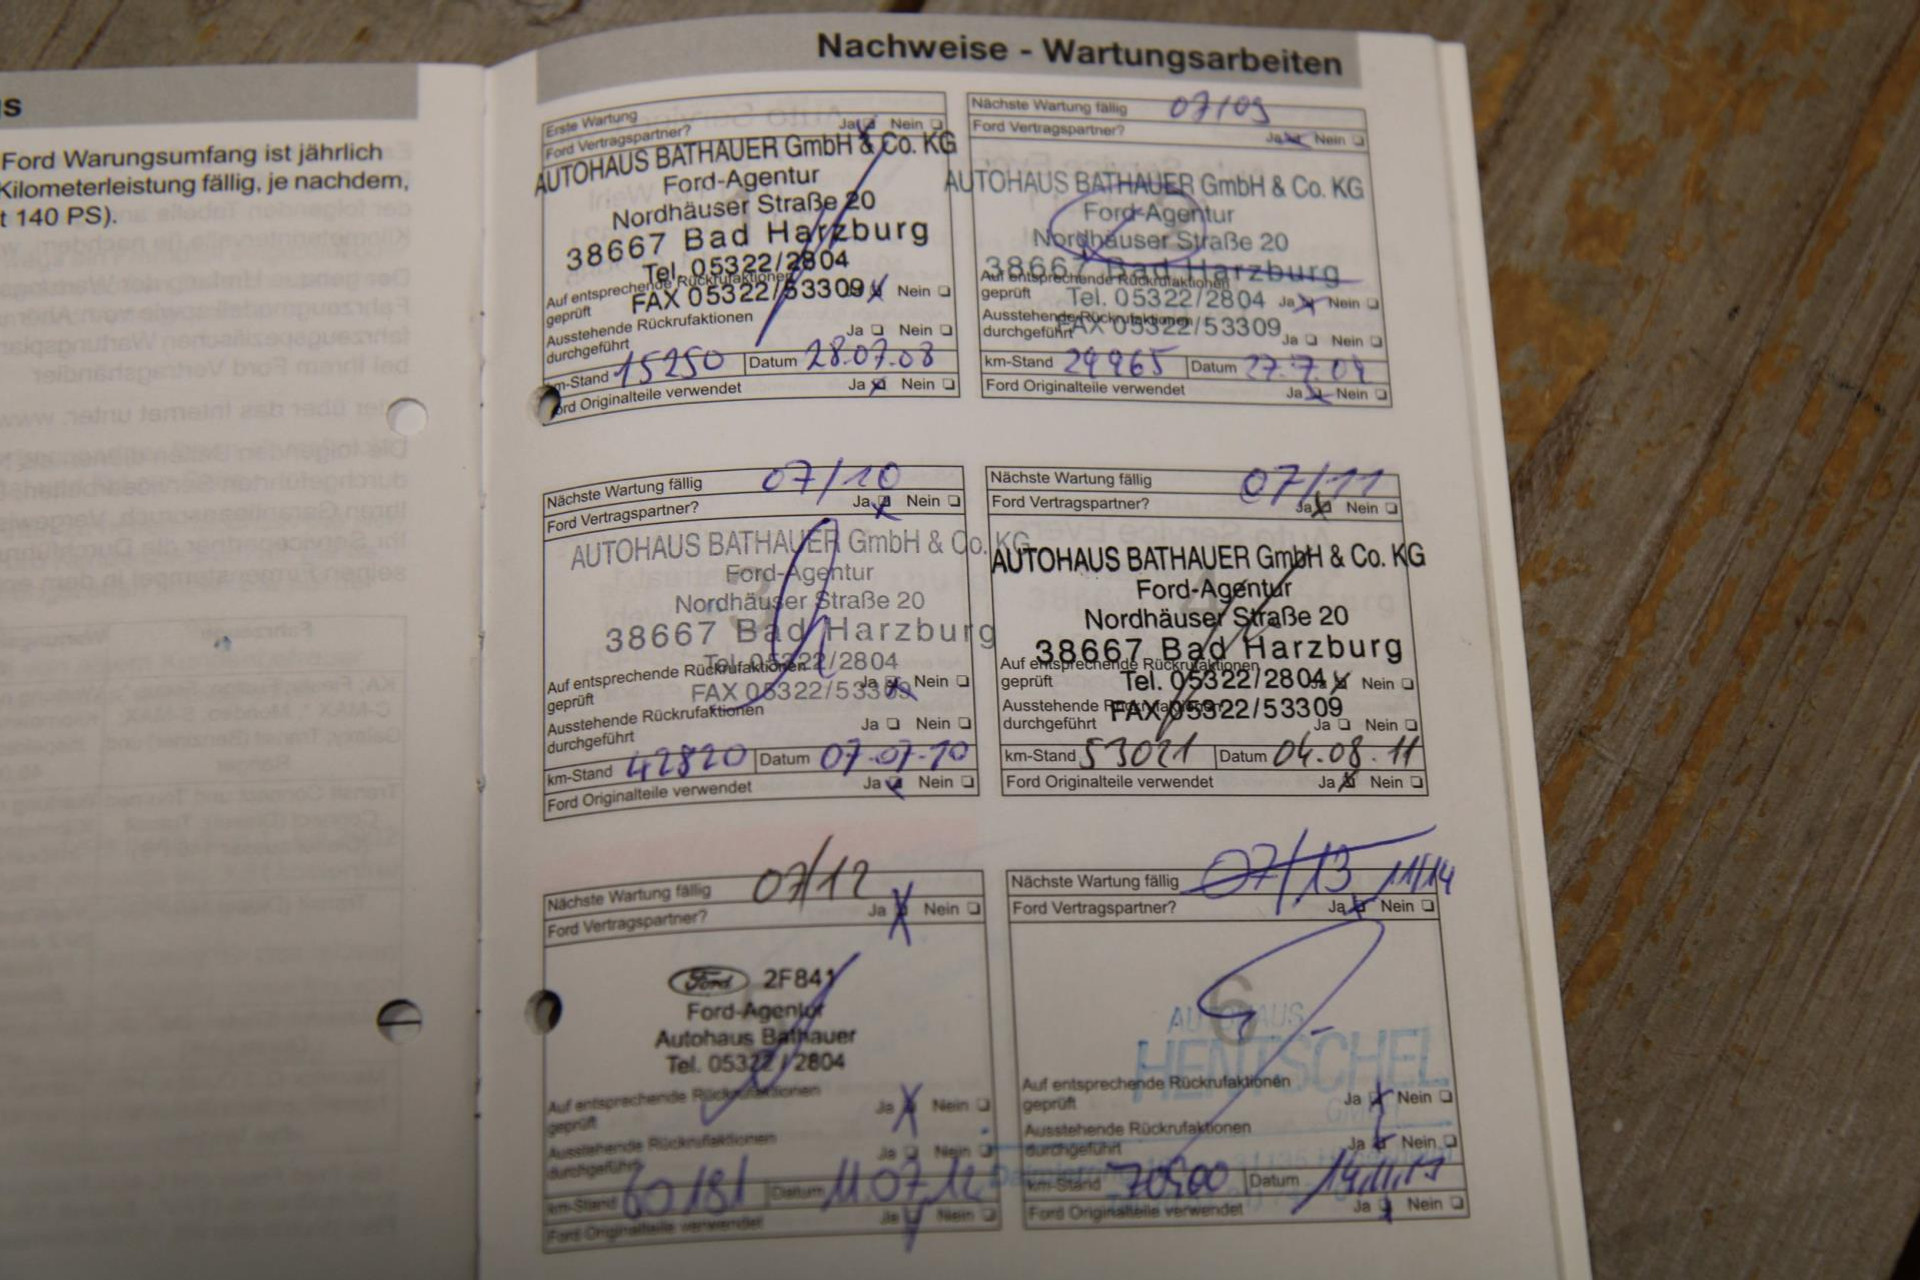 gs
Ford Warungsumfang ist jährlich
Kilometerleistung fällig, je nachdem,
t 140 PS).
Nachweise - Wartungsarbeiten
Erste Wartung
Ford Vertragspartner? Ja Nein
AUTOHAUS BATHAUER GmbH & Co. KG
Ford-Agentur
Nordhäuser Straße 20
38667 Bad Harzburg
Tel. 05322/2804
Auf entsprechende Rückrufaktionen
geprüft FAX 05322/53309 Nein
Ausstehende Rückrufaktionen
durchgeführt Ja Nein
km-Stand 15250 Datum 28.07.08
Ford Originalteile verwendet Ja Nein
Nächste Wartung fällig 07/09
Ford Vertragspartner? Ja Nein
AUTOHAUS BATHAUER GmbH & Co. KG
Ford-Agentur
Nordhäuser Straße 20
38667 Bad Harzburg
Auf entsprechende Rückrufaktionen
geprüft Tel. 05322/2804 Ja Nein
Ausstehende Rückrufaktionen
durchgeführt FAX 05322/53309 Ja Nein
km-Stand 29965 Datum 27.7.09
Ford Originalteile verwendet Ja Nein
Nächste Wartung fällig 07/10
Ford Vertragspartner? Ja Nein
AUTOHAUS BATHAUER GmbH & Co. KG
3
Ford-Agentur
Nordhäuser Straße 20
38667 Bad Harzburg
Tel. 05322/2804
Auf entsprechende Rückrufaktionen
geprüft FAX 05322/53309 Ja Nein
Ausstehende Rückrufaktionen
durchgeführt Ja Nein
km-Stand 42820 Datum 07.07.10
Ford Originalteile verwendet Ja Nein
Nächste Wartung fällig 07/11
Ford Vertragspartner? Ja Nein
AUTOHAUS BATHAUER GmbH & Co. KG
4
Ford-Agentur
Nordhäuser Straße 20
38667 Bad Harzburg
Auf entsprechende Rückrufaktionen
geprüft Tel. 05322/2804 Ja Nein
Ausstehende Rückrufaktionen
durchgeführt FAX 05322/53309 Ja Nein
km-Stand 53021 Datum 04.08.11
Ford Originalteile verwendet Ja Nein
Nächste Wartung fällig 07/12
Ford Vertragspartner? Ja Nein
Ford 2F841
Ford-Agentur
Autohaus Bathauer
Tel. 05322 / 2804
Auf entsprechende Rückrufaktionen
geprüft Ja Nein
Ausstehende Rückrufaktionen
durchgeführt Ja Nein
km-Stand 60181 Datum 11.07.12
Ford Originalteile verwendet Ja Nein
Nächste Wartung fällig 07/13 11/14
Ford Vertragspartner? Ja Nein
6
AUTOHAUS
HENTSCHEL
GMBH
Auf entsprechende Rückrufaktionen
geprüft Ja Nein
Ausstehende Rückrufaktionen
durchgeführt Ja Nein
km-Stand 70900 Datum
Ford Originalteile verwendet Ja Nein